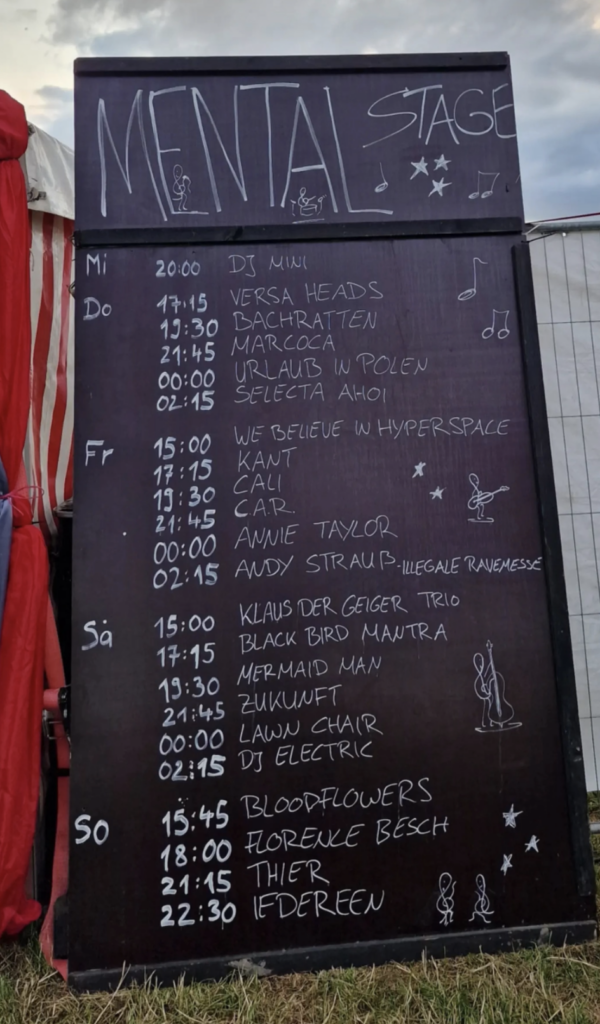 MENTAL STAGE
Mi 20:00 DJ MINI
Do 17:15 VERSA HEADS
19:30 BACHRATTEN
21:45 MARCOCA
00:00 URLAUB IN POLEN
02:15 SELECTA AHOI
Fr 15:00 WE BELIEVE IN HYPERSPACE
17:15 KANT
19:30 CALI
21:45 C.A.R.
00:00 ANNIE TAYLOR
02:15 ANDY STRAUß - ILLEGALE RAVEMESSE
Sa 15:00 KLAUS DER GEIGER TRIO
17:15 BLACK BIRD MANTRA
19:30 MERMAID MAN
21:45 ZUKUNFT
00:00 LAWN CHAIR
02:15 DJ ELECTRIC
SO 15:45 BLOODFLOWERS
18:00 FLORENCE BESCH
21:15 THIER
22:30 IEDEREEN